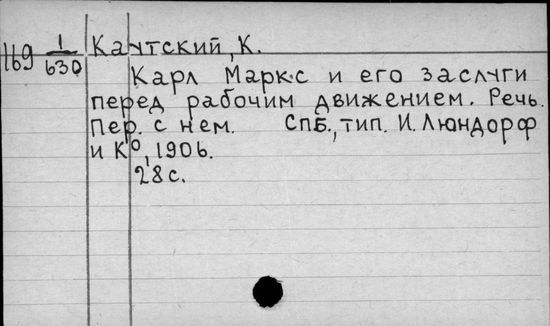 169 1/630 Каутский, К.
Карл Маркс и его заслуги
перед рабочим движением. Речь.
Пер. с нем. СПБ., тип. И. Люндорф
и К⁰, 1906.
28 с.